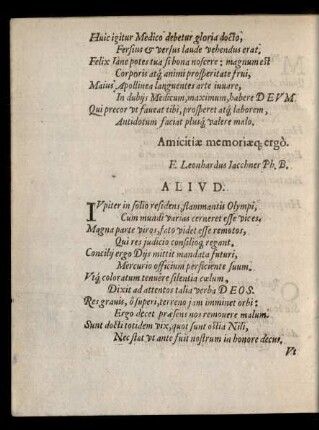 Huic igitur Medico debetur gloria docto,
Fersius & versus laude vehendus erat,
Felix sane potes tua si bona noscere: magnum est
Corporis atq́ animi prosperitate frui,
Maius Apollinea languentes arte iuvare,
In dubijs Medicum, maximum, habere DEVM.
Qui precor ut faveat tibi, prosperet atq́ laborem,
Antidotum faciat plusq́ valere malo.
Amicitiæ memoriæq; ergò.
F. Leonhardus Iacchner Ph. B.
ALIVD.
IVpiter in solio residens, flammantis Olympi,
Cum mundi varias cerneret esse vices,
Magna parte viros, fato videt esse remotos,
Qui res judicio consilioq́ regant.
Concilij ergo Dijs mittit mandata futuri,
Mercurio officium perficiente suum.
Vtq́ coloratum tenuere silentia cœlum,
Dixit ad attentos talia verba DEOS.
Res gravis, ô superi, terreno jam imminet orbi:
Ergo decet præsens nos removere malum.
Sunt docti totidem vix, quot sunt ostia Nili,
Nec stat ut ante suit nostrum in honore decus,
Vt